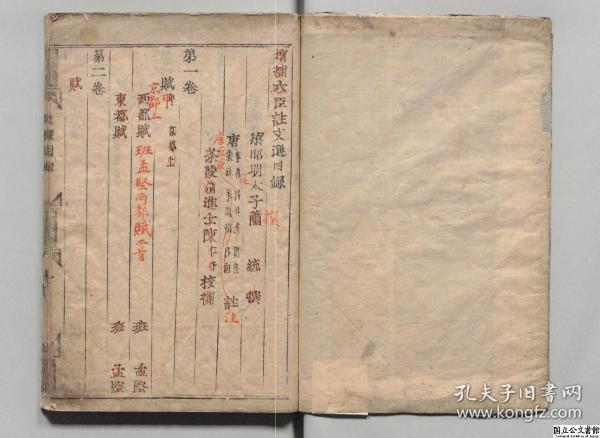 增補六臣註文選目錄
梁昭明太子蕭 統 撰
撰
唐
註
註
茶陵前進士陳仁子校補
第一卷
賦甲
京都上
京都上
西都賦 班孟堅兩都賦二首 班 孟堅
東都賦 班 孟堅
第二卷
賦
孔夫子旧书网
www.kongfz.com
国立公文書館
National Archives of Japan